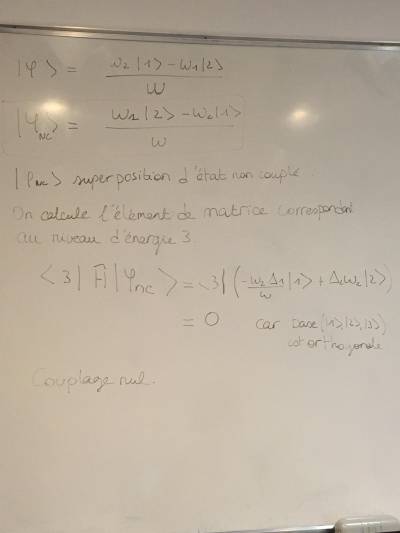 |φ> = (w₂|1> - w₁|2>) / W
|φ_NC> = (w₁|2> - w₂|1>) / W
|φ_NC> superposition d'état non couplé.
On calcule l'élément de matrice correspondant
au niveau d'énergie 3.
<3|Ĥ|φ_NC> = <3|(-w₂Δ₁/w |1> + Δ₂w₂|2>)
= 0 car base (|1>,|2>,|3>)
est orthogonale
Couplage nul.